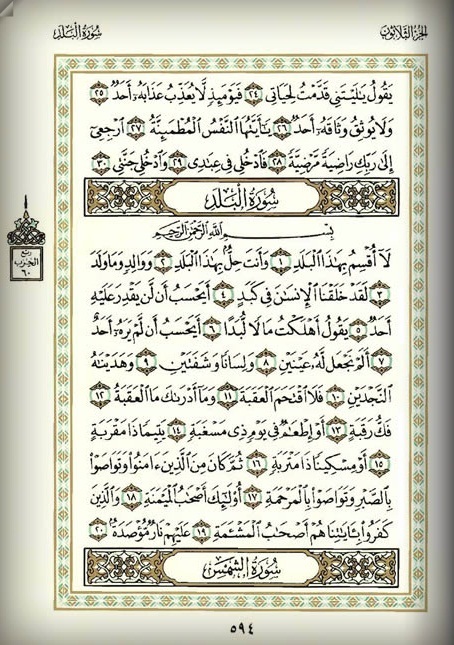 سُورَةُ الْبَلَدِ
الجزء الثلاثون
يَقُولُ يَٰلَيْتَنِى قَدَّمْتُ لِحَيَاتِى ٢٤ فَيَوْمَئِذٍ لَّا يُعَذِّبُ عَذَابَهُۥٓ أَحَدٌ ٢٥
وَلَا يُوثِقُ وَثَاقَهُۥٓ أَحَدٌ ٢٦ يَٰٓأَيَّتُهَا النَّفْسُ الْمُطْمَئِنَّةُ ٢٧ ارْجِعِىٓ
إِلَىٰ رَبِّكِ رَاضِيَةً مَّرْضِيَّةً ٢٨ فَادْخُلِى فِى عِبَٰدِى ٢٩ وَادْخُلِى جَنَّتِى ٣٠
سُورَةُ الْبَلَدِ
بِسْمِ اللَّهِ الرَّحْمَٰنِ الرَّحِيمِ
لَآ أُقْسِمُ بِهَٰذَا الْبَلَدِ ١ وَأَنتَ حِلٌّۢ بِهَٰذَا الْبَلَدِ ٢ وَوَالِدٍ وَمَا وَلَدَ
٣ لَقَدْ خَلَقْنَا الْإِنسَٰنَ فِى كَبَدٍ ٤ أَيَحْسَبُ أَن لَّن يَقْدِرَ عَلَيْهِ
أَحَدٌ ٥ يَقُولُ أَهْلَكْتُ مَالًا لُّبَدًا ٦ أَيَحْسَبُ أَن لَّمْ يَرَهُۥٓ أَحَدٌ
٧ أَلَمْ نَجْعَل لَّهُۥ عَيْنَيْنِ ٨ وَلِسَانًا وَشَفَتَيْنِ ٩ وَهَدَيْنَٰهُ
النَّجْدَيْنِ ١٠ فَلَا اقْتَحَمَ الْعَقَبَةَ ١١ وَمَآ أَدْرَىٰكَ مَا الْعَقَبَةُ ١٢
فَكُّ رَقَبَةٍ ١٣ أَوْ إِطْعَٰمٌ فِى يَوْمٍ ذِى مَسْغَبَةٍ ١٤ يَتِيمًا ذَا مَقْرَبَةٍ
١٥ أَوْ مِسْكِينًا ذَا مَتْرَبَةٍ ١٦ ثُمَّ كَانَ مِنَ الَّذِينَ ءَامَنُوا۟ وَتَوَاصَوْا۟
بِالصَّبْرِ وَتَوَاصَوْا۟ بِالْمَرْحَمَةِ ١٧ أُو۟لَٰٓئِكَ أَصْحَٰبُ الْمَيْمَنَةِ ١٨ وَالَّذِينَ
كَفَرُوا۟ بِـَٔايَٰتِنَا هُمْ أَصْحَٰبُ الْمَشْـَٔمَةِ ١٩ عَلَيْهِمْ نَارٌ مُّؤْصَدَةٌۢ ٢٠
سُورَةُ الشَّمْسِ
ربع
الحزب
٦٠
٥٩٤